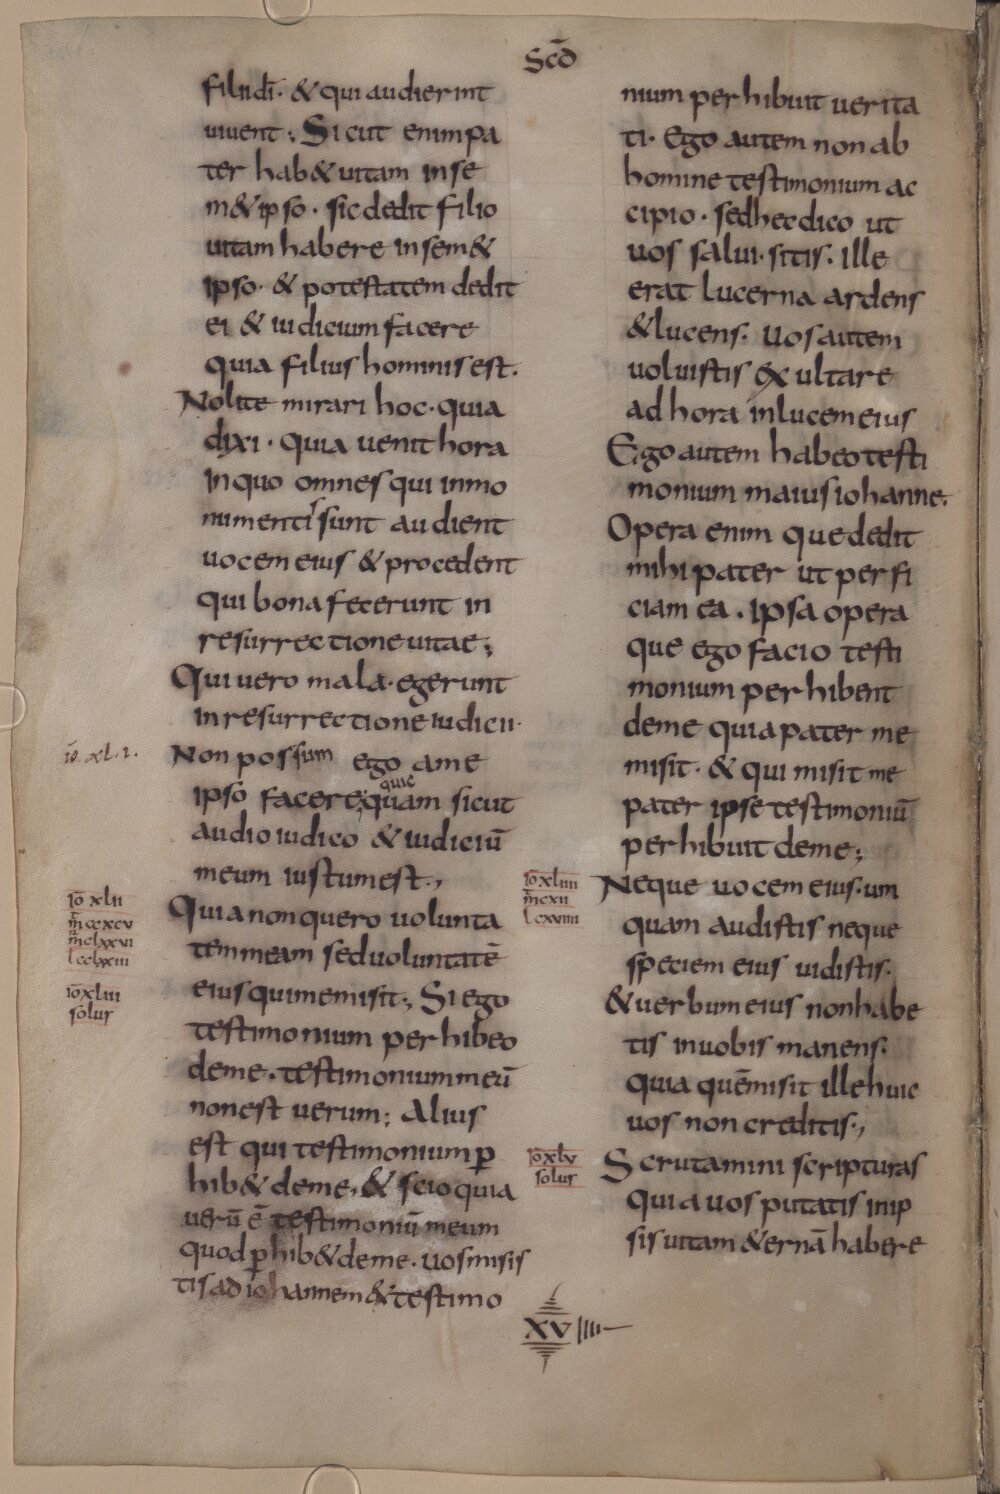 Scd̄
filii dī · & qui audierint
uiuent ; Sicut enim pa
ter hab& uitam in se
m& ipso · sic dedit filio
uitam habere in sem&
ipso · & potestatem dedit
ei & iudicium facere
quia filius hominis est .
Nolite mirari hoc · quia
dixi · quia uenit hora
in quo omnes qui in mo
numentis sunt audient
uocem eius & procedent
qui bona fecerunt in
resurrectione uitae ;
Qui uero mala · egerunt
in resurrectione iudicii ·
iō . xl . 1 .
Non possum ego a me
ipso facere quicquam sicut
audio iudico & iudiciū
meum iustum est . ,
iō xlii
m̄ ccxcv
m̄r clxxvi
l cclxxiii
Quia non quero uolunta
tem meam sed uoluntatē
eius qui me misit ; Si ego
iō xliii
solus
testimonium perhibeo
de me . testimonium meū
non est uerum ; Alius
est qui testimonium ꝑ
hib& de me , & scio quia
uerū ē testimoniū meum
quod ꝑhib& de me . uos misis
tis ad iohannem & testimo
nium perhibuit uerita
ti · Ego autem non ab
homine testimonium ac
cipio · sed hec dico ut
uos salui · sitis . ille
erat lucerna ardens
& lucens . uos autem
uoluistis exultare
ad hora in lucem eius
Ego autem habeo testi
monium maius iohanne .
Opera enim que dedit
mihi pater ut perfi
ciam ea . ipsa opera
que ego facio testi
monium perhibent
de me quia pater me
misit · & qui misit me
pater ipse testimoniū
perhibuit de me ;
iō xliiii
m̄ cxii
l cxviiii
Neque uocem eius · um
quam audistis neque
speciem eius uidistis .
& uerbum eius non habe
tis in uobis manens .
quia quē misit ille huic
uos non creditis . ,
iō xlv
solus
Scrutamini scripturas
quia uos putatis in ip
sis uitam &ernā habere
XVIIII